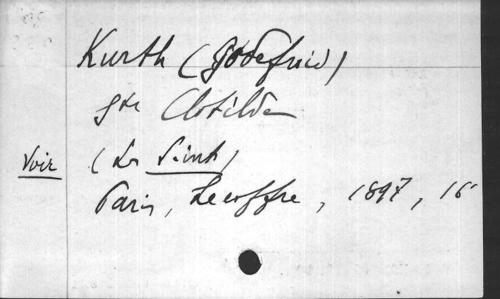 Kurth (Godefroid)
Ste Clotilde
Voir (Les Saints)
Paris, Lecoffre, 1897, 16°